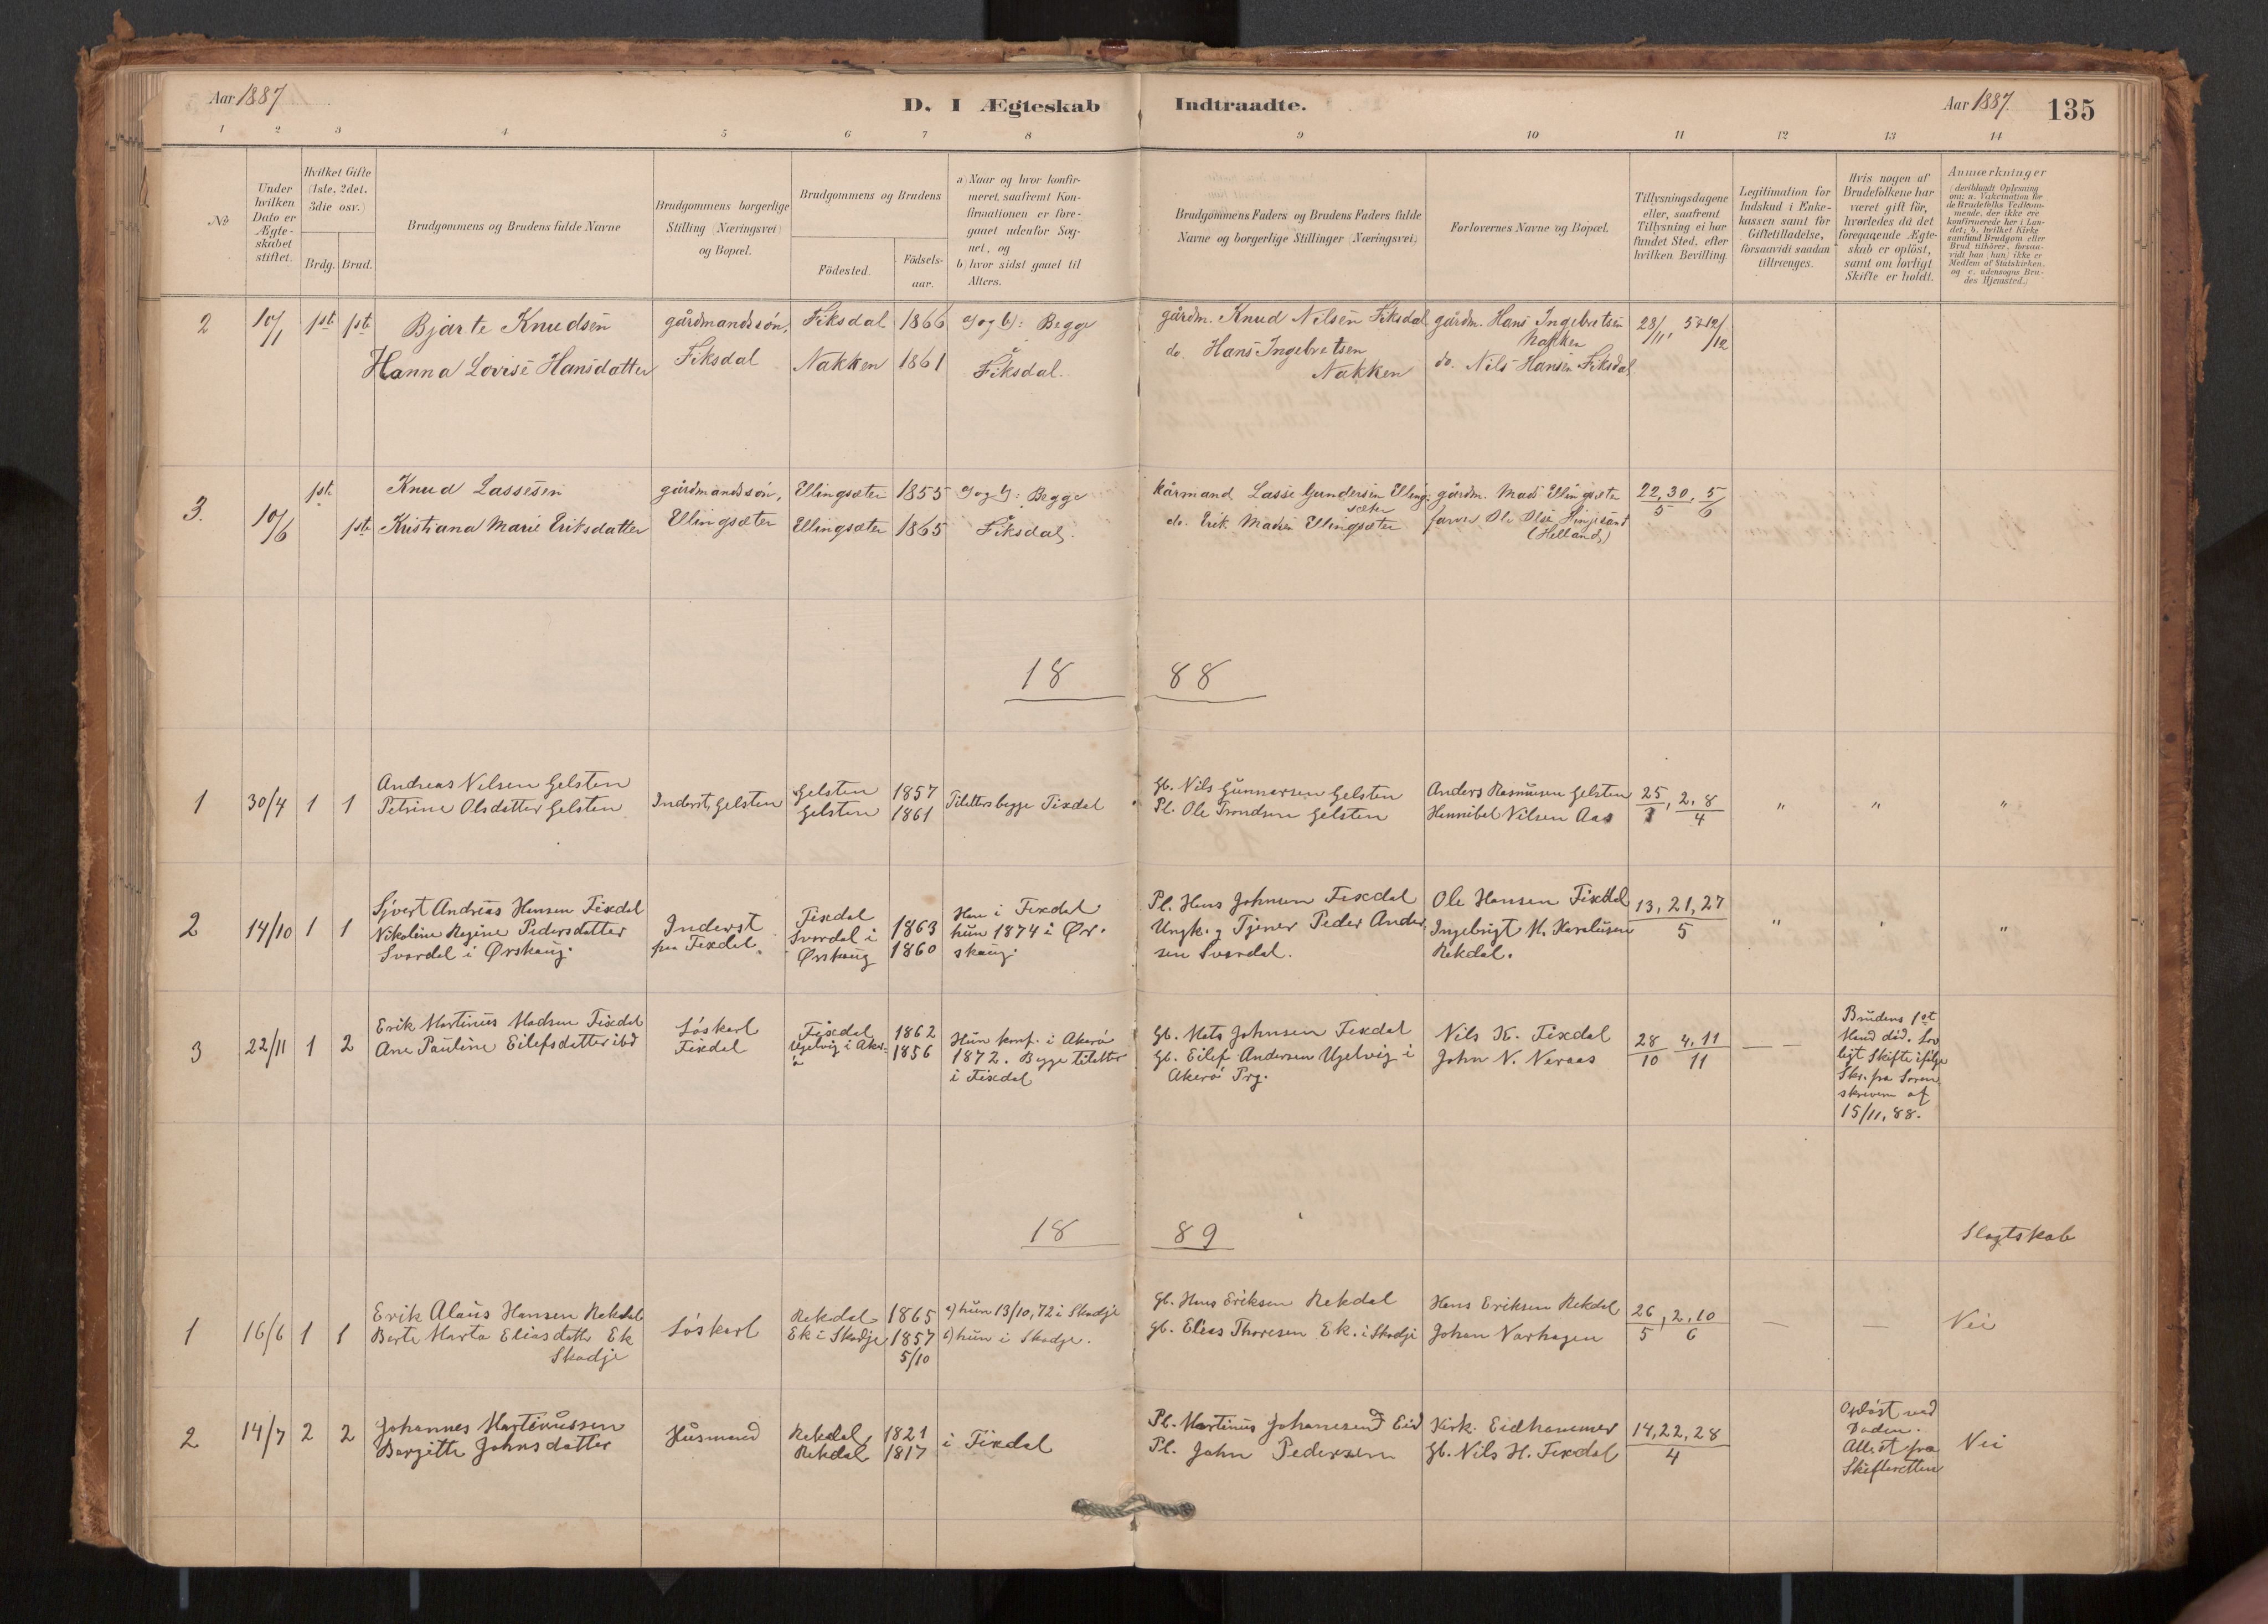 Aar 1887
D. I Ægteskab Indtraadte.
Aar 1887. 135
1 2 3 4 5 6 7 8 9 10 11 12 13 14
No
Under hvilken Dato er Ægteskabet stiftet.
Hvilket Gifte (1ste, 2det, 3die osv.)
Brdg. Brud.
Brudgommens og Brudens fulde Navne
Brudgommens borgerlige Stilling (Næringsvei) og Bopæl.
Brudgommens og Brudens
Födested.
Födsels-aar.
a) Naar og hvor konfir-
meret, saafremt Kon-
firmationen er fore-
gaaet udenfor Sog-
net, og
b) hvor sidst gaaet til
Alters.
Brudgommens Faders og Brudens Faders fulde
Navne og borgerlige Stillinger (Næringsvei)
Forlovernes Navne og Bopæl.
Tillysningsdagene
eller, saafremt
Tillysning ei har
fundet Sted, efter
hvilken Bevilling.
Legitimation for
Indskud i Enke-
kassen samt for
Giftetilladelse,
forsaavidt saadan
tiltrænges.
Hvis nogen af
Brudefolkene har
været gift för,
hvorledes da det
foregaaende Ægte-
skab er oplöst,
samt om lovligt
Skifte er holdt.
Anmærkninger
(deriblandt Oplysning
om: a. Vakcination for
de Brudefolks Vedkom-
mende, der ikke ere
konfirmerede her i Lan-
det; b. hvilket Kirke-
samfund Brudgom eller
Brud tilhörer, forsaa-
vidt han (hun) ikke er
Medlem af Statskirken,
og c. udensogns Bru-
des Hjemsted.)
2 10/1 1ste 1ste Bjarte Knudsen gårdmandssön, Fiksdal 1866 a) og b): Begge gårdm. Knud Nilsen Fiksdal gårdm. Hans Ingebretsen Nakken 28/11, 5 & 12/12
Hanna Lovise Hansdatter Fiksdal Nakken 1861 å Fiksdal. do. Hans Ingebretsen Nakken do. Nils Hansen Fiksdal
3. 10/6 1ste Knud Lassesen gårdmandssön, Ellingsæter 1855 a) og b): Begge kårmand Lasse Gundersen Ellingsæter gårdm. Mads Ellingsæter 22, 30/5, 5/6
1ste Kristiana Marie Eriksdatter Ellingsæter Ellingsæter 1865 å Fiksdal. do. Erik Madsen Ellingsæter farver Ole Olsen (Helland)
18 88
1 30/4 1 1 Andreas Nilsen Gelsten Inderst, Gelsten Gelsten 1857 Tilalters begge Fixdal Gb. Nils Gunnersen Gelsten Anders Rasmusen Gelsten 25/3, 2, 8/4 " " "
Petrine Olsdatter Gelsten Gelsten 1861 Pl. Ole Trondsen Gelsten Hannibal Nilsen Aas
2 14/10 1 1 Sjvert Andreas Hansen Fixdal Inderst Fixdal 1863 Han i Fixdal Pl. Hans Johnsen Fixdal Ole Hansen Fixdal 13, 21, 27/5 " " "
Nikoline Regine Pedersdatter paa Fixdal Svordal i 1860 hun 1874 i Ør- Ungk. og Tjener Peder Ander- Ingebrigt M. Karolusen
Svordal i Ørskoug. Ørskoug skoug. sen Svordal. Rekdal.
3 22/11 1 2 Erik Martinus Madsen Fixdal Löskarl Fixdal 1862 Hun konf. i Akerö Gb. Mats Johnsen Fixdal Nils K. Fixdal 28/10 4, 11/11 — — Brudens 1st
Ane Pauline Eilefsdatter ibd Fixdal Ugelvig i Aker- 1856 1872. Begge tilalter Gb. Eilef Andersen Ugelvig i John N. Neraas Mand död. Lov
ö i Fixdal Akerö Prg. ligt Skifte ifölge
Skr. fra Soren
skriveren af
15/11, 88.
18 89
Slægtskab
1 16/6 1 1 Erik Alaus Hansen Rekdal Löskarl Rekdal 1865 a) hun 13/10, 72 i Skodje Gb. Hans Eriksen Rekdal Hans Eriksen Rekdal 26/5, 2, 10/6 — — Nei
Berte Marta Eliasdatter Ek Ek i Skodje 1857 b) hun i Skodje. Gb. Elias Thoresen Ek. i Skodje Johan Varhagen
Skodje 5/10
2 14/7 2 2 Johannes Martinussen Husmand Rekdal 1821 i Fixdal Pl. Martinus Johanesen Eid Kirk. Eidhammer 14, 22, 28/4 Oplöst ved Nei
Bergitte Johnsdatter Rekdal 1817 Pl. John Pedersen Gb. Nils H. Fixdal Döden.
Attest fra
Skifteretten